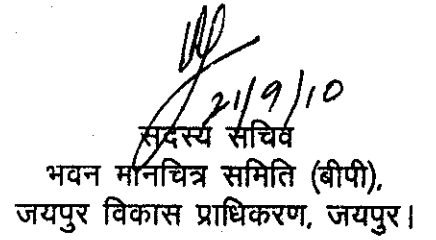 21/9/10
सदस्य सचिव
भवन मानचित्र समिति (बीपी),
जयपुर विकास प्राधिकरण, जयपुर।